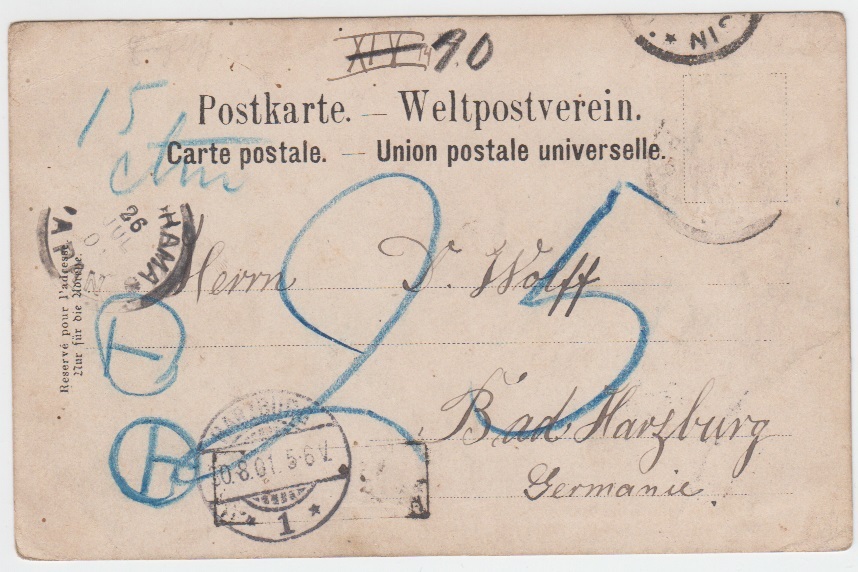 XIV 14 90
15
ctm
Postkarte. — Weltpostverein.
Carte postale. — Union postale universelle.
HAMA
26
JUL
Reservé pour l'adresse.
Nur für die Adresse.
Herrn D. Wolff
25
T
T
Bad Harzburg
Germanie
0.8.01.5-6V.
* 1 *